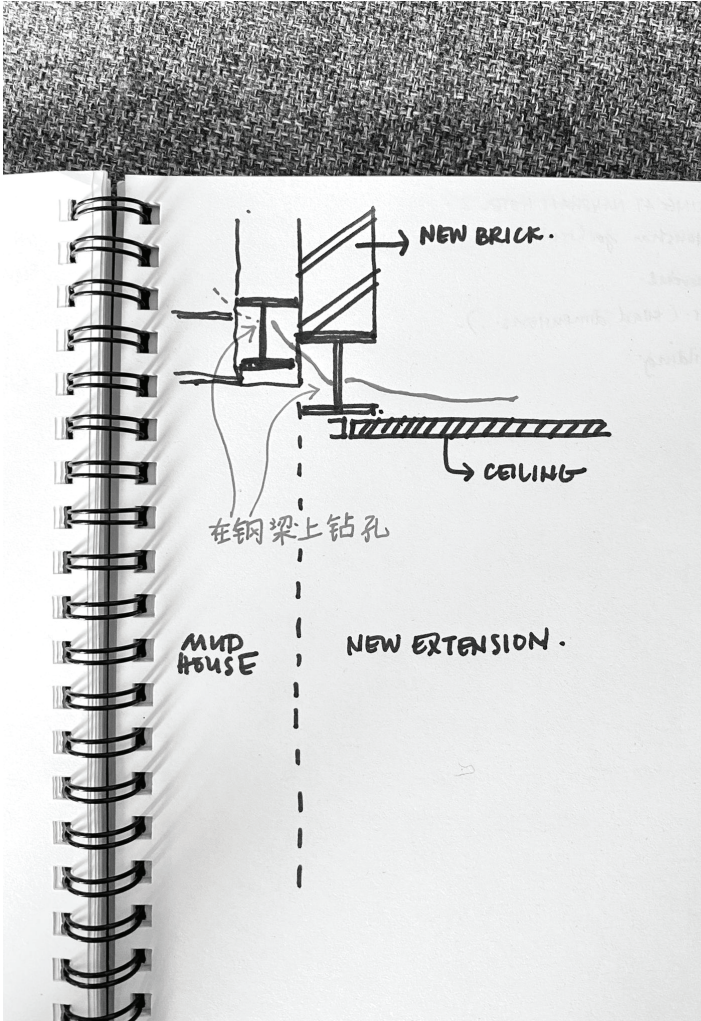 NEW BRICK.
CEILING
在钢梁上钻孔
MUD
HOUSE
NEW EXTENSION.